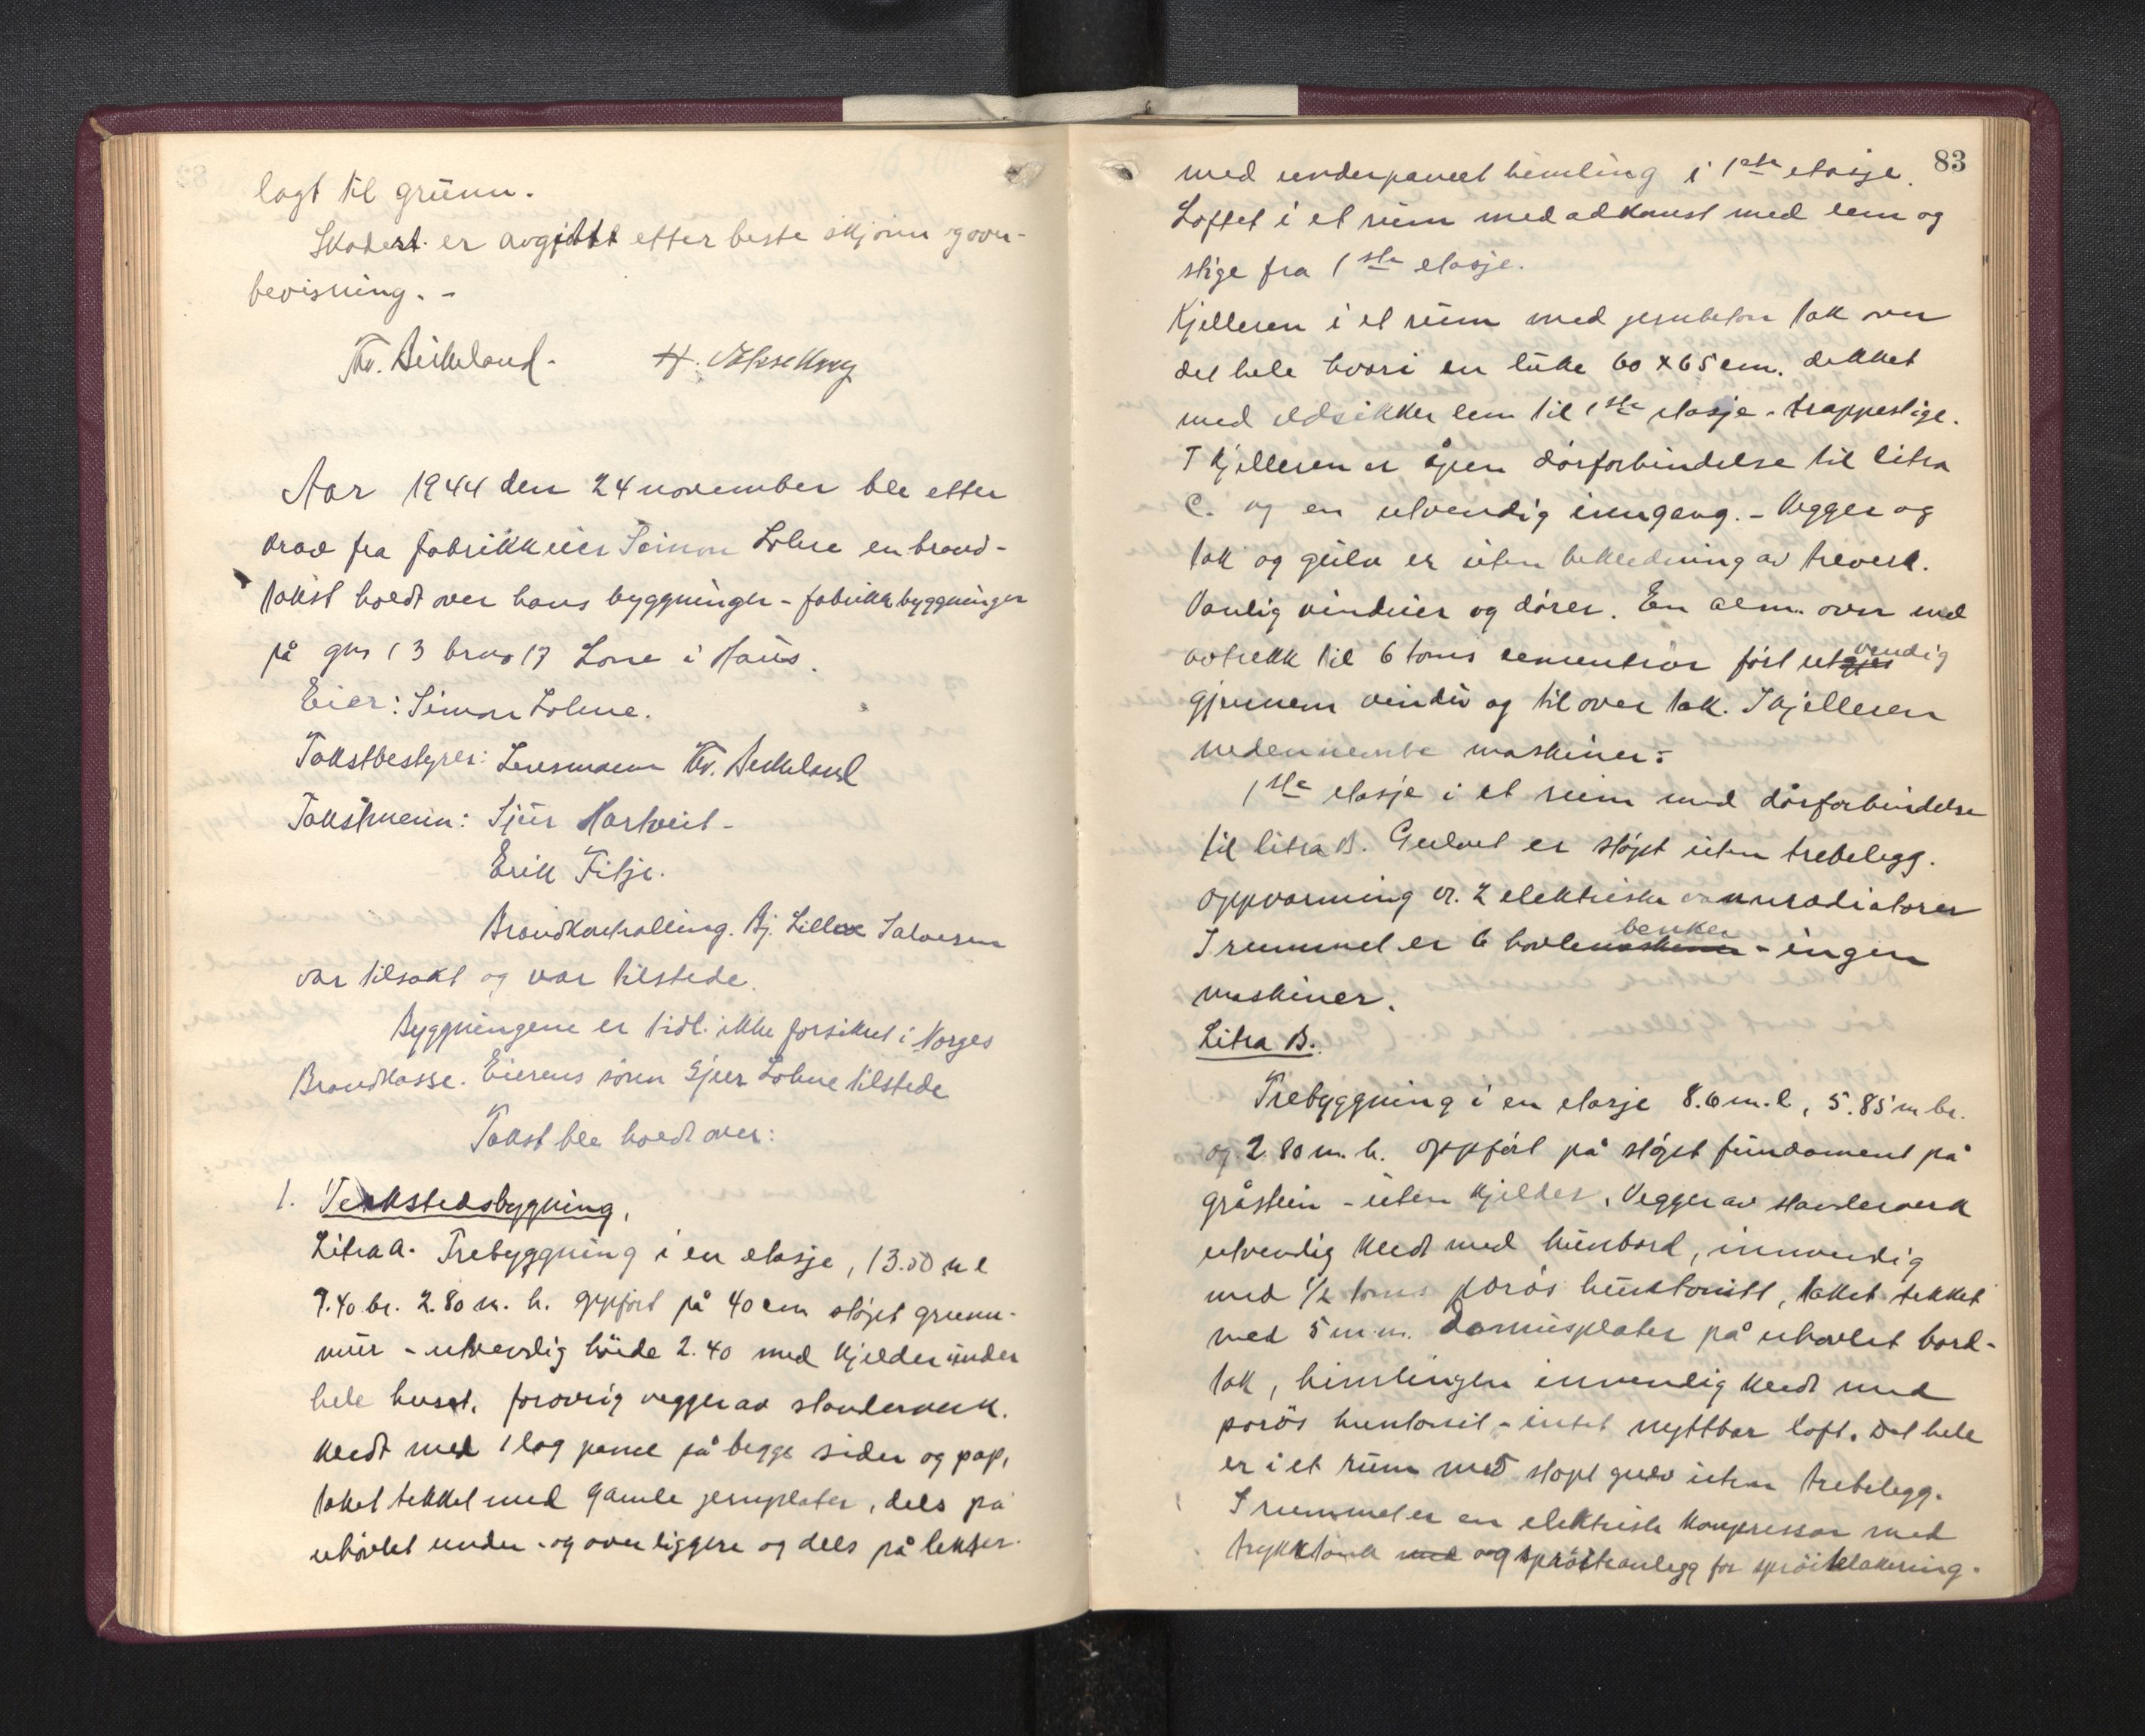 lagt til grunn.
Skadest. er avgitt efter beste skjönn og over-
bevisning. -
Kr. Birkeland. H.
Aar 1944 den 24 november ble etter
krav fra fabrikkeier Simon Lohne en brand-
takst holdt over hans byggninger - fabrikkbyggninger
på gnr 13 brno 17 Lone i Haus.
Eier: Simon Lohne.
Takstbestyrer: Lensmann Kr. Birkeland
Takstmenn: Sjur Hartveit -
Erik Titje.
Brandkontrolling. Bj. Lillox Salvesen
var tilsakt og var tilstede.
Byggningene er tidl. ikke forsikret i Norges
Brandkasse. Eierens sönn Sjur Lohne tilstede
Takst ble holdt over:
1. Verkstedsbygning.
Litra A. Trebyggning i en etasje, 13.50 m l
9.40 br. 2.80 m. h. oppfört på 40 cm stöpt grunn-
mur - utvendig höide 2.40 med kjelder under
hele huset. forövrig vegger av standerverk.
kledt med 1 lag panel på begge sider og pap,
taket tekket med gamle jernplater, dels på
uhövlet under - og overliggere og dels på lekter.
83
med underpanel himling i 1ste etasje.
Loftet i et rum med adkomst med lem og
stige fra 1ste etasje.
Kjelleren i et rum med jernbeton tak over
det hele hvori en luke 60 x 65 cm. dekket
med ildsikker lem til 1ste etasje - trappestige.
I kjelleren er åpen dörforbindelse til litra
C. og en utvendig inngang. - Vegger og
tak og gulv er uten bekledning av treverk.
Vanlig vinduer og dörer. En alm. ovn med
avtrekk til 6 toms sementrör fört utvendig
gjennem vindu og til over tak. I kjelleren
nedennevnte maskiner:
1ste etasje i et rum med dörforbindelse
til litra B. Gulvet er stöpt uten trebelegg.
Oppvarming er. 2 elektriske vannradiatorer
benker
I rummet er 6 hövlemaskiner - ingen
maskiner.
Litra B.
Trebyggning i en etasje 8.6 m. l, 5.85 m br.
og 2.80 m. h. oppfört på stöpt fundament på
gråstein - uten kjelder. Vegger av standerverk
utvendig kledt med hunbord, innvendig
med 1/2 toms porös huntonitt, taket tekket
med 5 m.m. Domusplater på uhövlet bord-
tak, himlingen innvendig kledt med
porös huntonit - intet nyttbar loft. Det hele
er i et rum med stöpt gulv uten trebelegg.
I rummet er en elektrisk kompressor med
trykktank med og spröiteanlegg for spröitelakering.